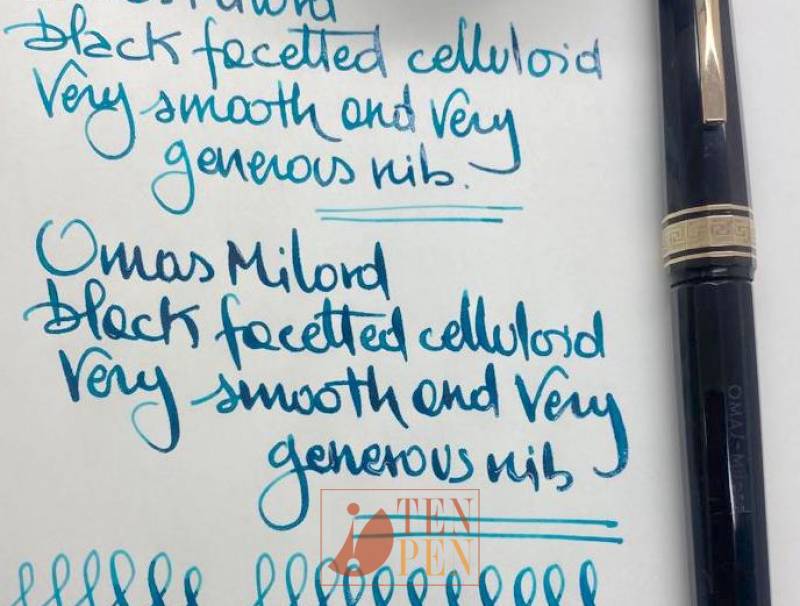 Milord
black facetted celluloid
Very smooth and Very
generous nib.
Omas Milord
black facetted celluloid
Very smooth and Very
generous nib
TEN
PEN
OMAS-Milord